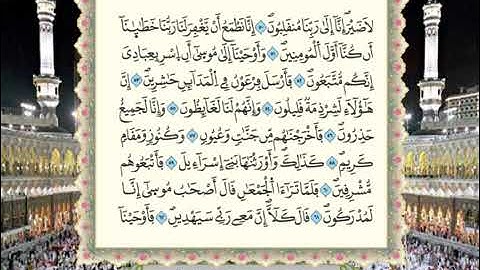 لَا ضَيْرَ إِنَّا إِلَىٰ رَبِّنَا مُنقَلِبُونَ ۝ إِنَّا نَطْمَعُ أَن يَغْفِرَ لَنَا رَبُّنَا خَطَٰيَٰنَآ
أَن كُنَّآ أَوَّلَ ٱلْمُومِنِينَ ۝ وَأَوْحَيْنَآ إِلَىٰ مُوسَىٰٓ أَنِ ٱسْرِ بِعِبَادِيَ
إِنَّكُم مُّتَّبَعُونَ ۝ فَأَرْسَلَ فِرْعَوْنُ فِي ٱلْمَدَآئِنِ حَٰشِرِينَ ۝ إِنَّ
هَٰٓؤُلَآءِ لَشِرْذِمَةٌ قَلِيلُونَ ۝ وَإِنَّهُمْ لَنَا لَغَآئِظُونَ ۝ وَإِنَّا لَجَمِيعٌ
حَذِرُونَ ۝ فَأَخْرَجْنَٰهُم مِّن جَنَّٰتٍ وَعُيُونٍ ۝ وَكُنُوزٍ وَمَقَامٍ
كَرِيمٍ ۝ كَذَٰلِكَ وَأَوْرَثْنَٰهَا بَنِيٓ إِسْرَآءِيلَ ۝ فَأَتْبَعُوهُم
مُّشْرِقِينَ ۝ فَلَمَّا تَرَٰٓءَا ٱلْجَمْعَٰنِ قَالَ أَصْحَٰبُ مُوسَىٰٓ إِنَّا
لَمُدْرَكُونَ ۝ قَالَ كَلَّآ إِنَّ مَعِي رَبِّي سَيَهْدِينِ ۝ فَأَوْحَيْنَآ